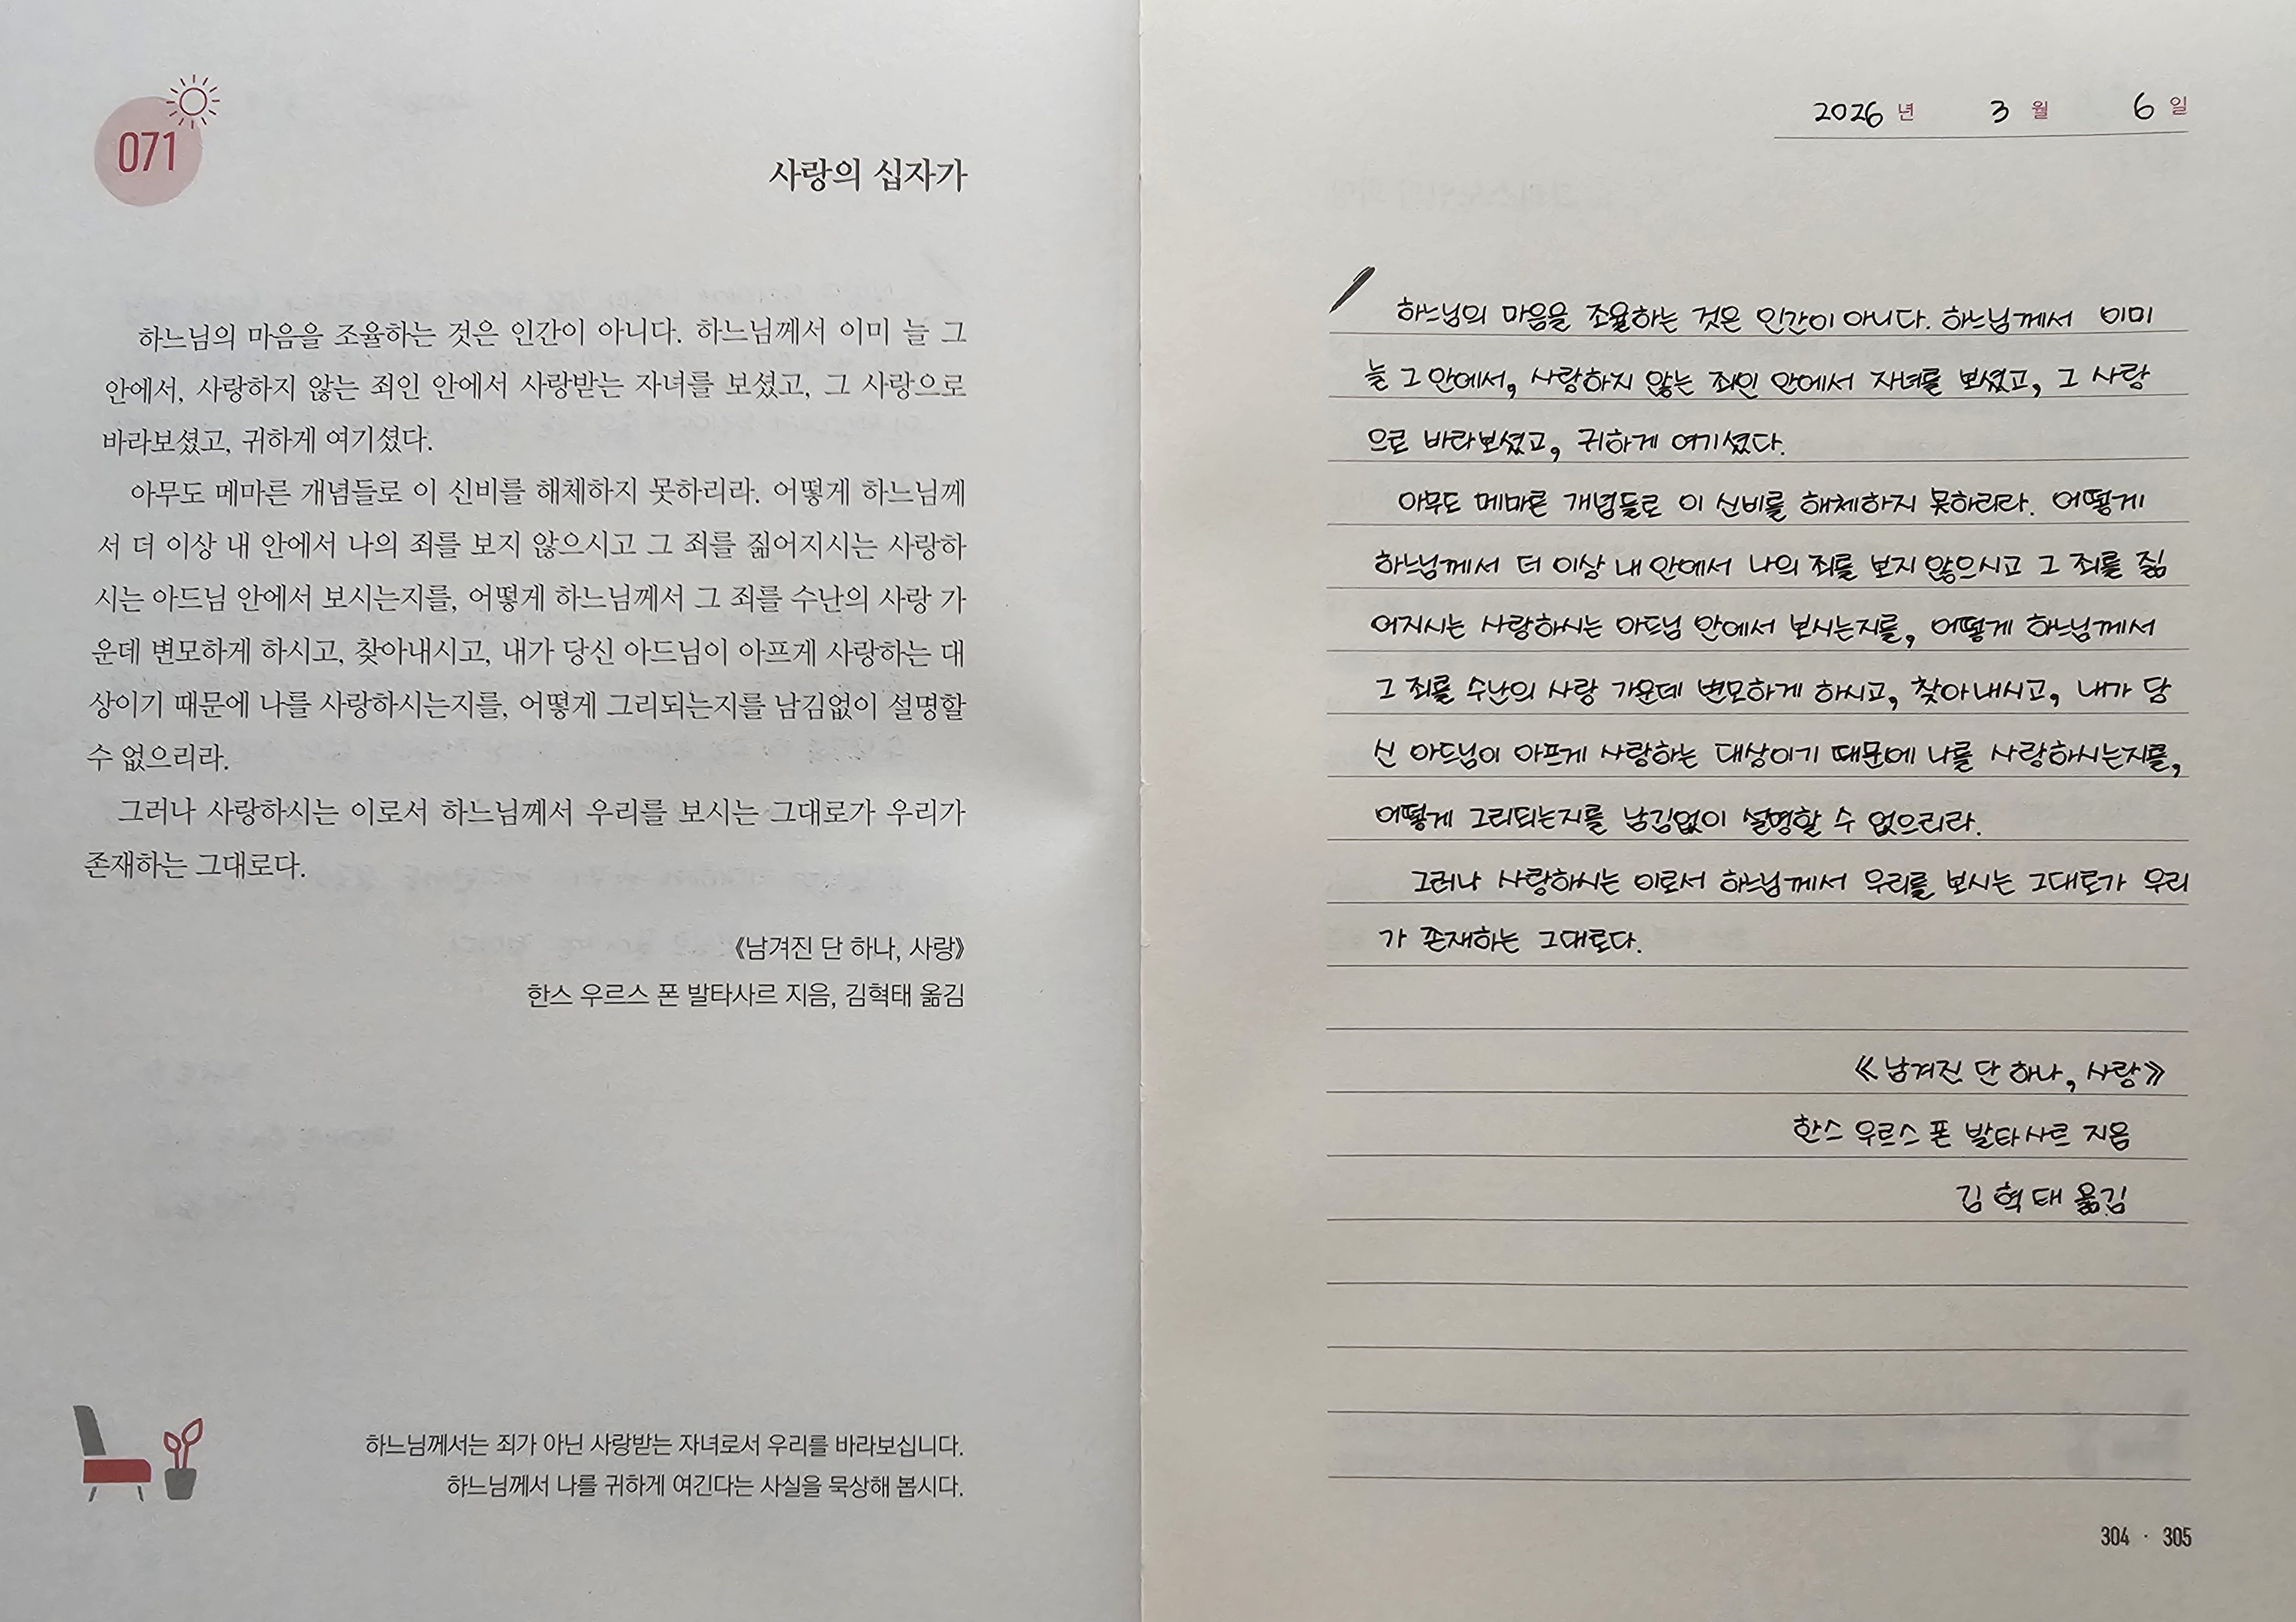 071
사랑의 십자가
하느님의 마음을 조율하는 것은 인간이 아니다. 하느님께서 이미 늘 그
안에서, 사랑하지 않는 죄인 안에서 사랑받는 자녀를 보셨고, 그 사랑으로
바라보셨고, 귀하게 여기셨다.
아무도 메마른 개념들로 이 신비를 해체하지 못하리라. 어떻게 하느님께
서 더 이상 내 안에서 나의 죄를 보지 않으시고 그 죄를 짊어지시는 사랑하
시는 아드님 안에서 보시는지를, 어떻게 하느님께서 그 죄를 수난의 사랑 가
운데 변모하게 하시고, 찾아내시고, 내가 당신 아드님이 아프게 사랑하는 대
상이기 때문에 나를 사랑하시는지를, 어떻게 그리되는지를 남김없이 설명할
수 없으리라.
그러나 사랑하시는 이로서 하느님께서 우리를 보시는 그대로가 우리가
존재하는 그대로다.
《남겨진 단 하나, 사랑》
한스 우르스 폰 발타사르 지음, 김혁태 옮김
하느님께서는 죄가 아닌 사랑받는 자녀로서 우리를 바라보십니다.
하느님께서 나를 귀하게 여긴다는 사실을 묵상해 봅시다.
2026 년 3 월 6 일
하느님의 마음을 조율하는 것은 인간이 아니다. 하느님께서 이미
늘 그 안에서, 사랑하지 않는 죄인 안에서 자녀를 보셨고, 그 사랑
으로 바라보셨고, 귀하게 여기셨다.
아무도 메마른 개념들로 이 신비를 해체하지 못하리라. 어떻게
하느님께서 더 이상 내 안에서 나의 죄를 보지 않으시고 그 죄를 짊
어지시는 사랑하시는 아드님 안에서 보시는지를, 어떻게 하느님께서
그 죄를 수난의 사랑 가운데 변모하게 하시고, 찾아내시고, 내가 당
신 아드님이 아프게 사랑하는 대상이기 때문에 나를 사랑하시는지를,
어떻게 그리되는지를 남김없이 설명할 수 없으리라.
그러나 사랑하시는 이로서 하느님께서 우리를 보시는 그대로가 우리
가 존재하는 그대로다.
《남겨진 단 하나, 사랑》
한스 우르스 폰 발타사르 지음
김혁태 옮김
304 · 305